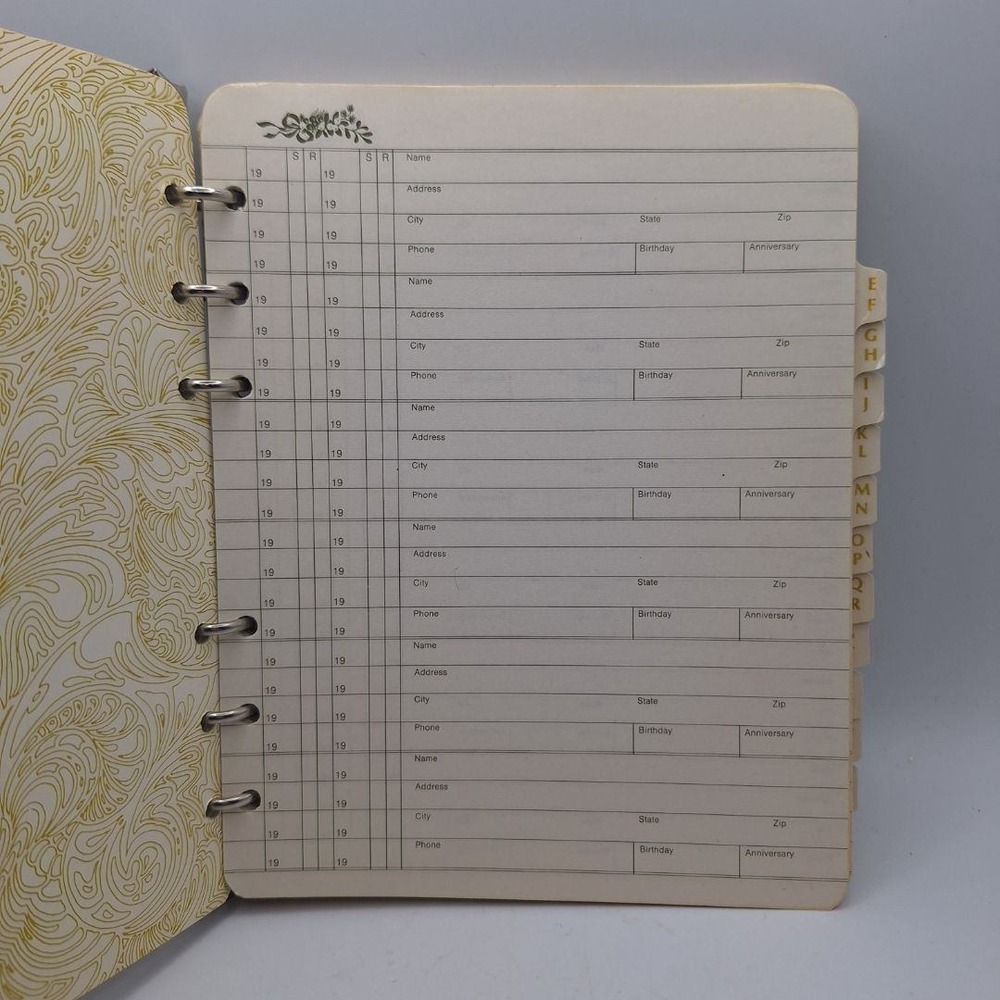 S R S R Name
19 19
Address
19 19
City State Zip
19 19
Phone Birthday Anniversary
19 19
Name
19 19
Address
19 19
City State Zip
19 19
Phone Birthday Anniversary
19 19
Name
19 19
Address
19 19
City State Zip
19 19
Phone Birthday Anniversary
19 19
Name
19 19
Address
19 19
City State Zip
19 19
Phone Birthday Anniversary
19 19
Name
19 19
Address
19 19
City State Zip
19 19
Phone Birthday Anniversary
19 19
Name
19 19
Address
19 19
City State Zip
19 19
Phone Birthday Anniversary
19 19
E
F
G
H
I
J
K
L
M
N
O
P
Q
R